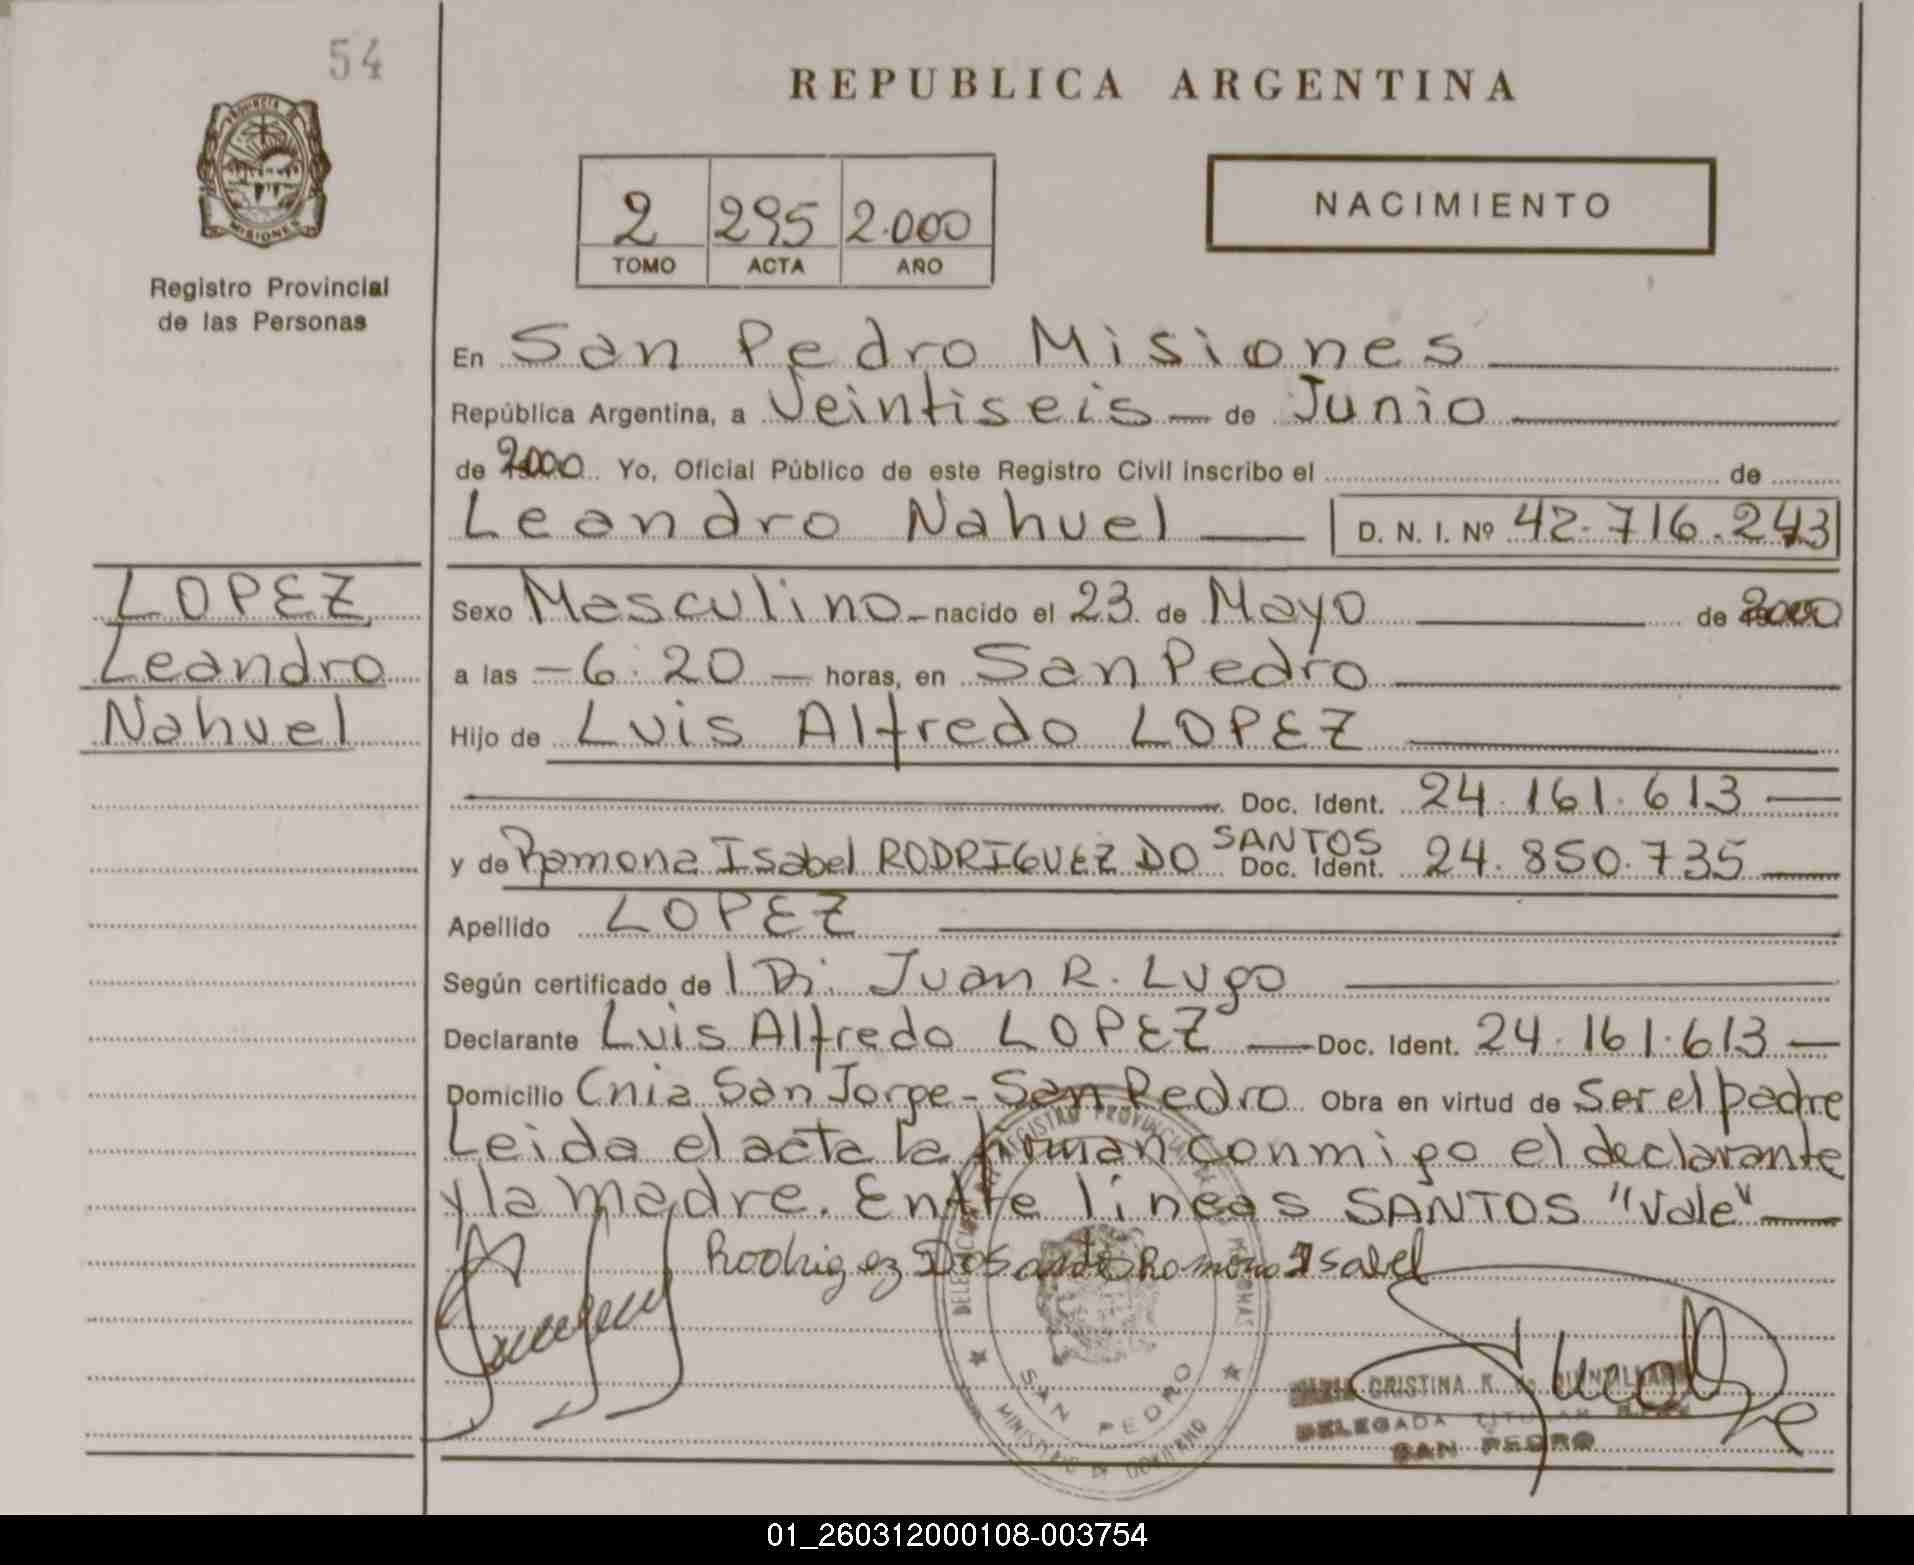 54
REPUBLICA ARGENTINA
PROVINCIA
MISIONES
Registro Provincial
de las Personas
2 295 2.000
TOMO ACTA AÑO
NACIMIENTO
En San Pedro Misiones
República Argentina, a Veintiseis — de Junio
de 2000 Yo, Oficial Público de este Registro Civil inscribo el de
Leandro Nahuel — D. N. I. Nº 42.716.243
LOPEZ
Leandro
Nahuel
Sexo Masculino - nacido el 23 de Mayo de 2000
a las - 6:20 — horas, en San Pedro
Hijo de Luis Alfredo LOPEZ
Doc. Ident. 24.161.613 —
SANTOS
y de Ramona Isabel RODRIGUEZ DO Doc. Ident. 24.850.735 —
Apellido LOPEZ
Según certificado de l Dr. Juan R. Lugo
Declarante Luis Alfredo LOPEZ — Doc. Ident. 24.161.613 —
Domicilio Cnia San Jorge - San Pedro Obra en virtud de Ser el padre
Leida el acta la firman conmigo el declarante
y la madre. Entre lineas SANTOS "Vale" —
Rodrigez Dosanto Romona Isabel
REGISTRO PROVINCIAL DE LAS PERSONAS
SAN PEDRO
MINISTERIO DE GOBIERNO
CRISTINA K. de
DELEGADA TITULAR
SAN PEDRO
01_260312000108-003754